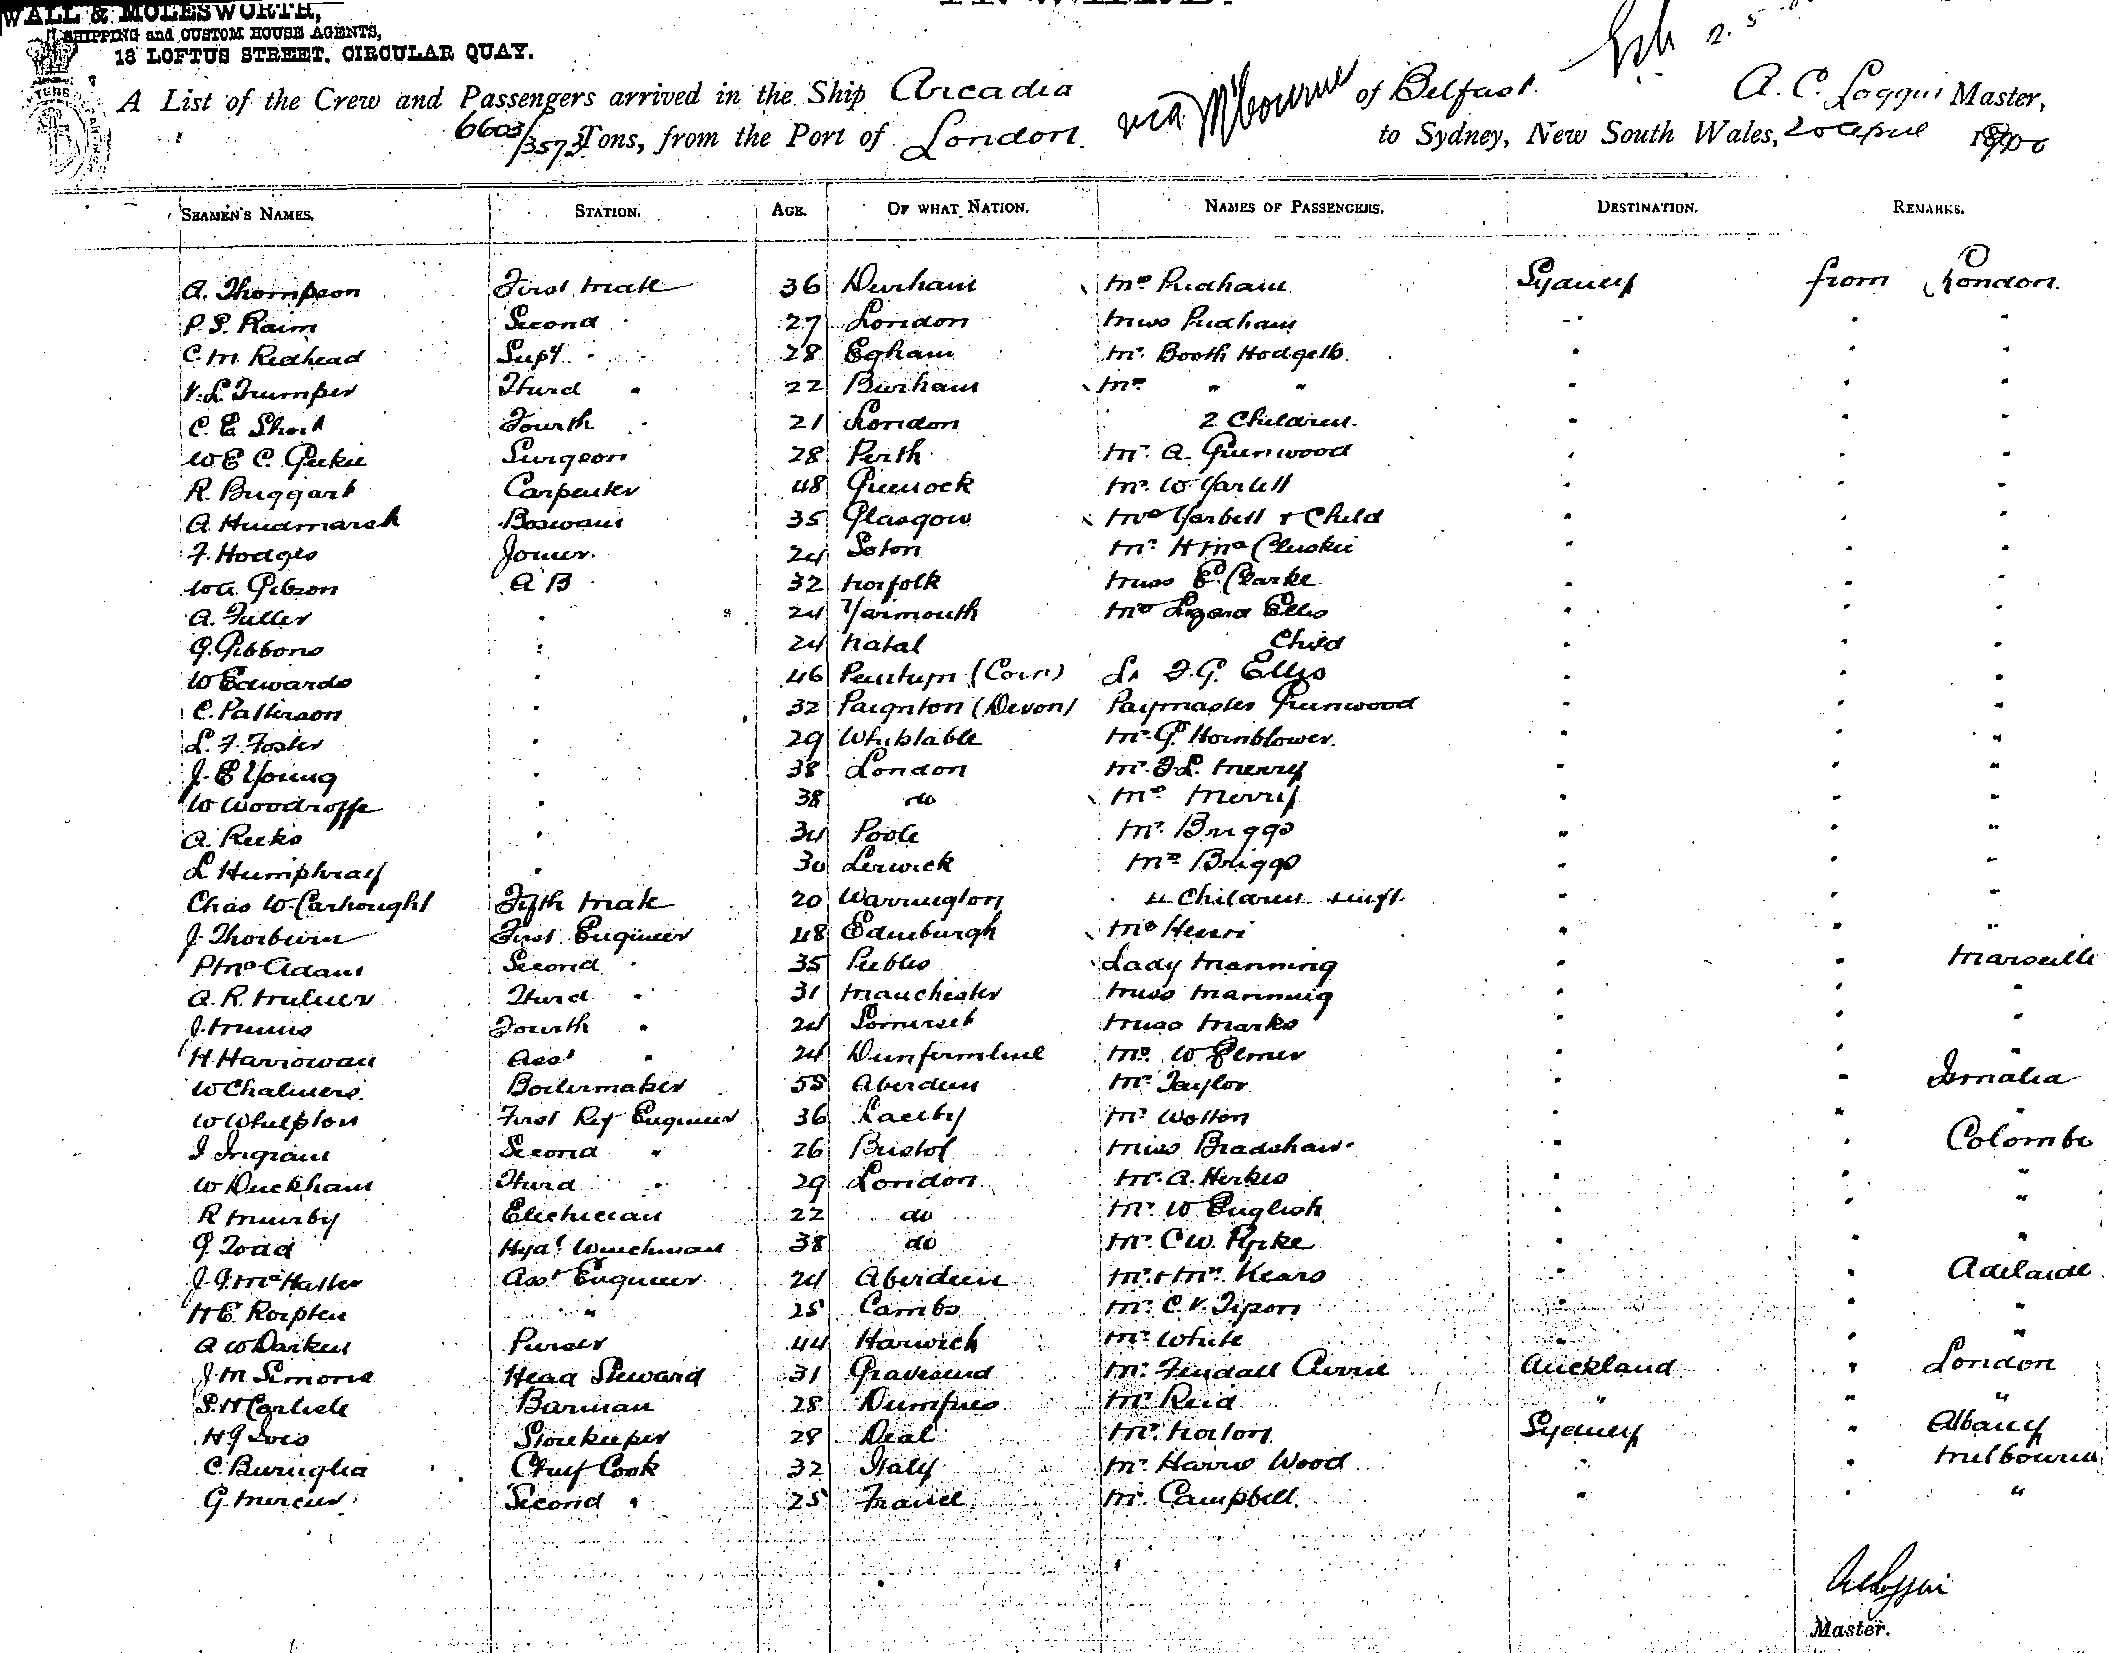 WALL & MOLESWORTH,
SHIPPING and CUSTOM HOUSE AGENTS,
18 LOFTUS STREET, CIRCULAR QUAY.
A List of the Crew and Passengers arrived in the Ship Arcadia via M'bourne of Belfast. A. C. Loggin Master,
6603/3573 Tons, from the Port of London to Sydney, New South Wales, 20 April 1900
SEAMEN'S NAMES. STATION. AGE. OF WHAT NATION. NAMES OF PASSENGERS. DESTINATION. REMARKS.
A. Thompson First Mate 36 Durham Mrs Pridham Sydney from London.
P. S. Raim Second " 27 London Miss Pridham " " "
C. M. Redhead Supy " 28 Egham Mr. Booth Hodgetts " " "
V. L. Trumper Third " 22 Burham Mrs " " " " "
C. E. Short Fourth " 21 London 2 Children. " " "
W E C. Geekie Surgeon 28 Perth Mr. A. Greenwood " " "
R. Buggart Carpenter 48 Greenock Mr. W Yarbett " " "
A Hindmarsh Boswain 35 Glasgow Mrs Yarbett & Child " " "
F. Hodges Joiner. 24 Soton Mr. H McCluskie " " "
W A. Gibson A B 32 Norfolk Miss E. Clarke " " "
A. Fuller " 24 Yarmouth Mrs Ellis " " "
G. Gibbons " 24 Natal Child " " "
W Edwards " 46 (Corn) Lt. F. G. Ellis " " "
C. Patterson " 32 Paignton (Devon) Paymaster Greenwood " " "
L. F. Foster " 29 Whitstable Mr. G. Hornblower. " " "
J. E Young " 38 London Mr. F. L. Merry " " "
W Woodroffe " 38 do Mrs Merry " " "
A. Reeks " 34 Poole Mr. Briggs " " "
L Humphray " 30 Lerwick Mrs Briggs " " "
Chas W. Cartwright Fifth Mate 20 Warrington 4 Children & inft. " " "
J. Thorburn First Engineer 48 Edinburgh Mrs Henri " " "
P McAdam Second " 35 Peebles Lady Manning " " Marseille
A. R. Milner Third " 31 Manchester Miss Manning " " "
J. Minns Fourth " 24 Somerset Miss Marks " " "
H. Harrowan Asst " 24 Dunfermline Mr. W Elmer " " "
W Chalmers Boilermaker 55 Aberdeen Mr. Taylor " " Ismalia
W Whelpton First Ref Engineer 36 Laceby Mr Wotton " " "
J Ingram Second " 26 Bristol Miss Bradshaw " " Colombo
W Duckham Third " 29 London Mr. A. Hirkes " " "
R Mumby Electrician 22 do Mr. W English " " "
G Todd Hyd. Winchman 38 do Mr. C W. Pyrke " " "
J. G. McHattie Asst Engineer 24 Aberdeen Mr. & Mrs. Kears " " Adelaide
H E. " 25 Cambs Mr. C. V. Tipson " " "
A W Darken Purser 44 Harwich Mr. White " " "
J. M Simons Head Steward 31 Gravesend Mr. Tindall Auckland " London
S. H Carlisle Barman 28 Dumfries Mr. Reid " " "
H G Ives Storekeeper 28 Deal Mr. Norton Sydney " Albany
C. Buruglia Chief Cook 32 Italy Mr. Harris Wood " " Melbourne
G. Mercier Second " 25 France Mr. Campbell. " " "
A C Loggin
Master.